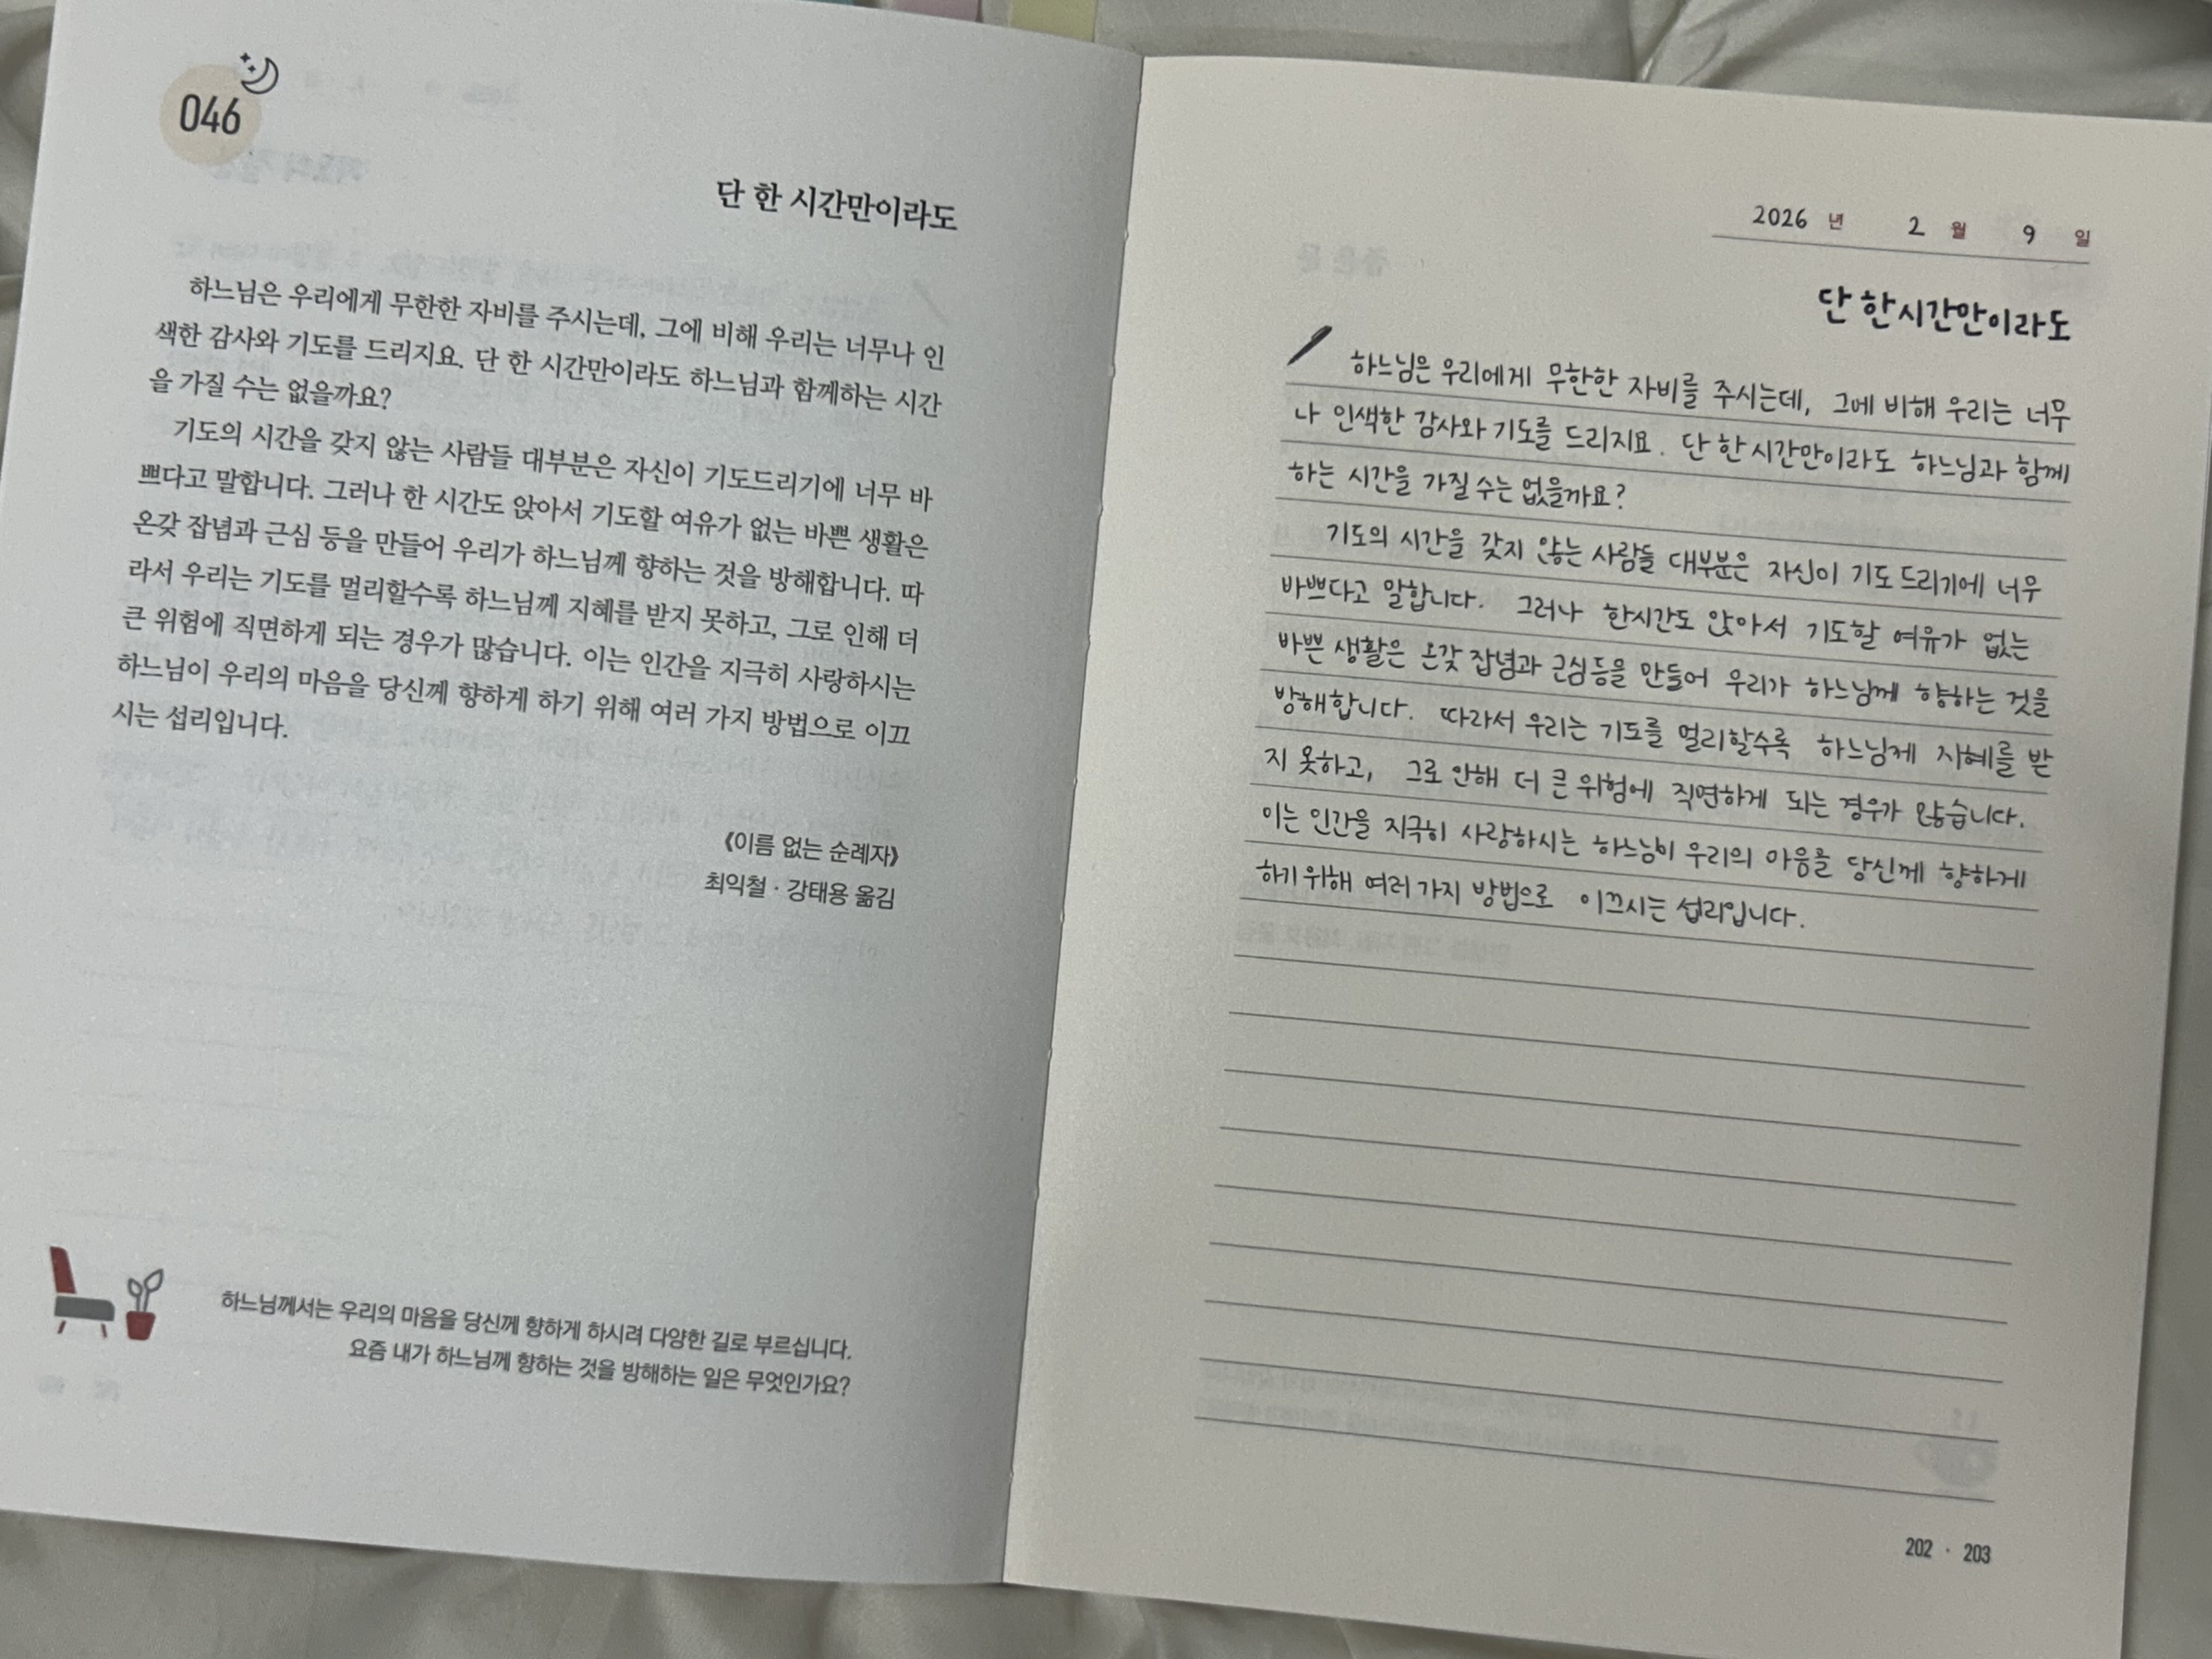 046
단 한 시간만이라도
하느님은 우리에게 무한한 자비를 주시는데, 그에 비해 우리는 너무나 인
색한 감사와 기도를 드리지요. 단 한 시간만이라도 하느님과 함께하는 시간
을 가질 수는 없을까요?
기도의 시간을 갖지 않는 사람들 대부분은 자신이 기도드리기에 너무 바
쁘다고 말합니다. 그러나 한 시간도 앉아서 기도할 여유가 없는 바쁜 생활은
온갖 잡념과 근심 등을 만들어 우리가 하느님께 향하는 것을 방해합니다. 따
라서 우리는 기도를 멀리할수록 하느님께 지혜를 받지 못하고, 그로 인해 더
큰 위험에 직면하게 되는 경우가 많습니다. 이는 인간을 지극히 사랑하시는
하느님이 우리의 마음을 당신께 향하게 하기 위해 여러 가지 방법으로 이끄
시는 섭리입니다.
《이름 없는 순례자》
최익철 · 강태용 옮김
하느님께서는 우리의 마음을 당신께 향하게 하시려 다양한 길로 부르십니다.
요즘 내가 하느님께 향하는 것을 방해하는 일은 무엇인가요?
2026 년 2 월 9 일
단 한시간만이라도
하느님은 우리에게 무한한 자비를 주시는데, 그에 비해 우리는 너무
나 인색한 감사와 기도를 드리지요. 단 한 시간만이라도 하느님과 함께
하는 시간을 가질 수는 없을까요?
기도의 시간을 갖지 않는 사람들 대부분은 자신이 기도드리기에 너무
바쁘다고 말합니다. 그러나 한시간도 앉아서 기도할 여유가 없는
바쁜 생활은 온갖 잡념과 근심등을 만들어 우리가 하느님께 향하는 것을
방해합니다. 따라서 우리는 기도를 멀리할수록 하느님께 지혜를 받
지 못하고, 그로 인해 더 큰 위험에 직면하게 되는 경우가 많습니다.
이는 인간을 지극히 사랑하시는 하느님이 우리의 마음을 당신께 향하게
하기 위해 여러 가지 방법으로 이끄시는 섭리입니다.
202 · 203